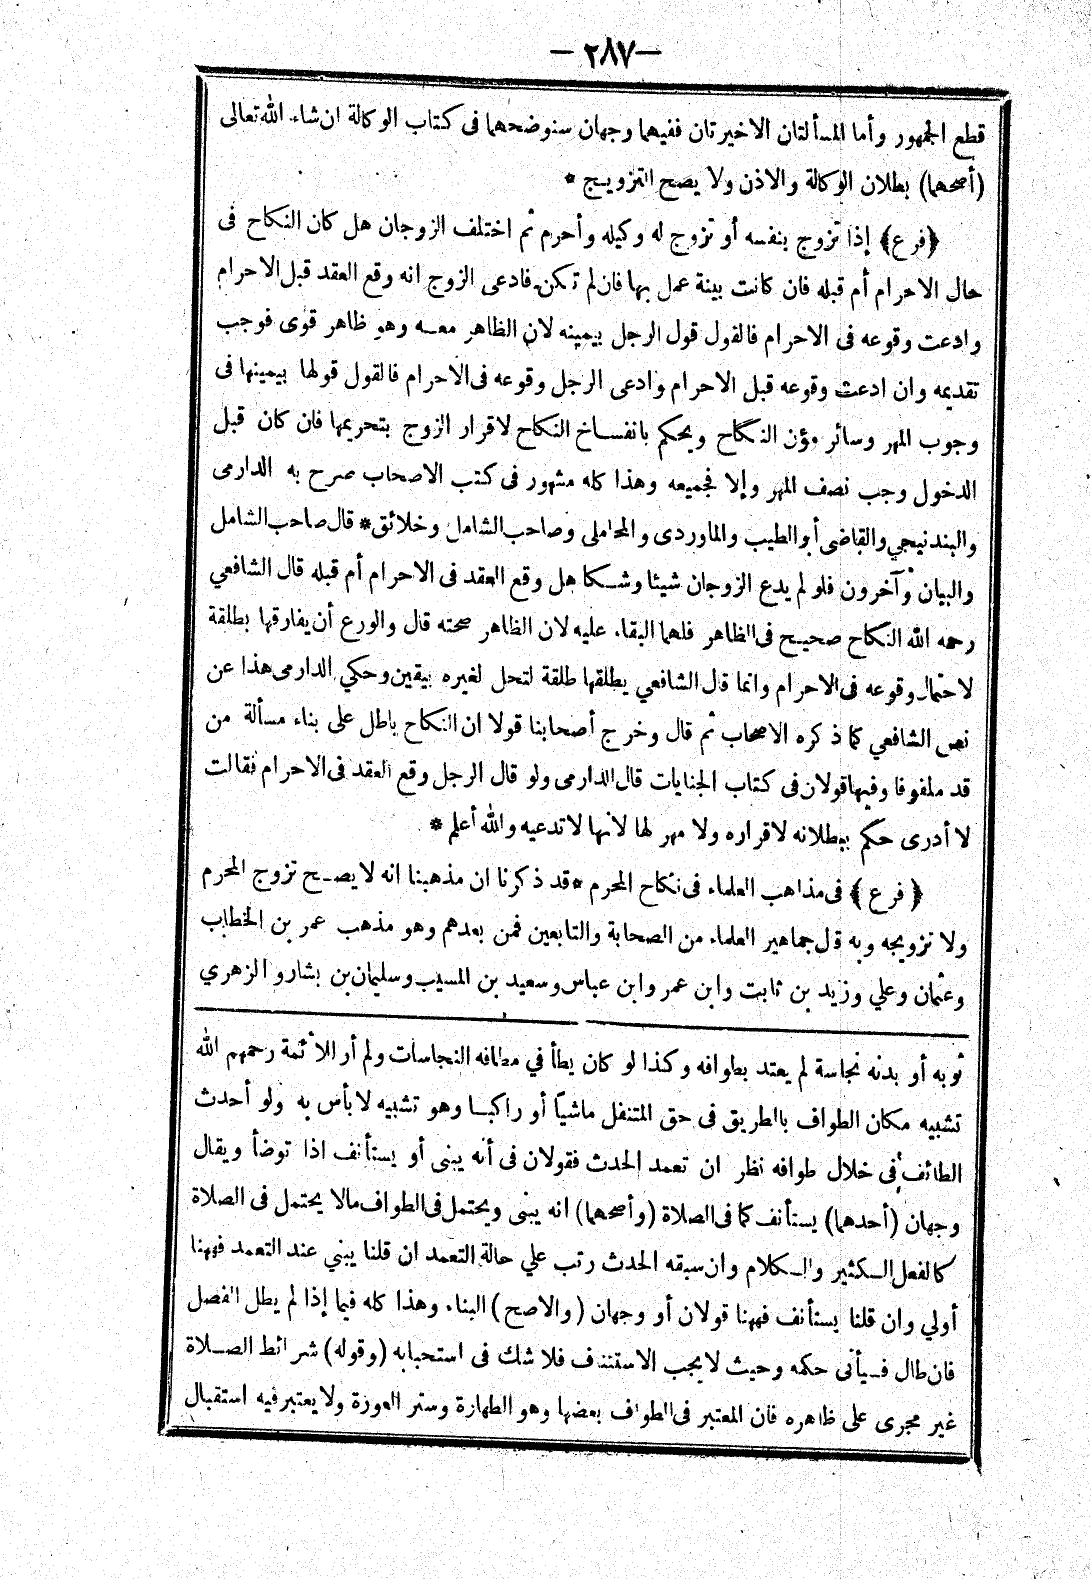 — ٢٨٧ —
قطع الجمهور وأما المسألتان الاخيرتان ففيهما وجهان سنوضحهما فى كتاب الوكالة ان شاء الله تعالى
(أصحهما) بطلان الوكالة والاذن ولا يصح التزويج *
﴿فرع﴾ إذا تزوج بنفسه أو تزوج له وكيله وأحرم ثم اختلف الزوجان هل كان النكاح فى
حال الاحرام أم قبله فان كانت بينة عمل بها فان لم تكن فادعى الزوج انه وقع العقد قبل الاحرام
وادعت وقوعه فى الاحرام فالقول قول الرجل بيمينه لان الظاهر معه وهو ظاهر قوى فوجب
تقديمه وان ادعت وقوعه قبل الاحرام وادعى الرجل وقوعه فى الاحرام فالقول قولها بيمينها فى
وجوب المهر وسائر مؤن النكاح ويحكم بانفساخ النكاح لاقرار الزوج بتحريمها فان كان قبل
الدخول وجب نصف المهر وإلا فجميعه وهذا كله مشهور فى كتب الاصحاب صرح به الدارمى
والبندنيجي والقاضى أبو الطيب والماوردى والمحاملى وصاحب الشامل وخلائق* قال صاحب الشامل
والبيان وآخرون فلو لم يدع الزوجان شيئا وشكا هل وقع العقد فى الاحرام أم قبله قال الشافعي
رحمه الله النكاح صحيح فى الظاهر فلهما البقاء عليه لان الظاهر صحته قال والورع أن يفارقها بطلقة
لاحتمال وقوعه فى الاحرام وانما قال الشافعي يطلقها طلقة لتحل لغيره بيقين وحكي الدارمى هذا عن
نص الشافعي كما ذكره الاصحاب ثم قال وخرج أصحابنا قولا ان النكاح باطل على بناء مسألة من
قد ملفوفا وفيها قولان فى كتاب الجنايات قال الدارمى ولو قال الرجل وقع العقد فى الاحرام فقالت
لا أدرى حكم ببطلانه لاقراره ولا مهر لها لانها لا تدعيه والله أعلم *
﴿فرع﴾ فى مذاهب العلماء فى نكاح المحرم * قد ذكرنا ان مذهبنا انه لا يصح تزوج المحرم
ولا تزويجه وبه قال جماهير العلماء من الصحابة والتابعين فمن بعدهم وهو مذهب عمر بن الخطاب
وعثمان وعلي وزيد بن ثابت وابن عمر وابن عباس وسعيد بن المسيب وسليمان بن بشار والزهري
ثوبه أو بدنه نجاسة لم يعتد بطوافه وكذا لو كان يطأ في مطافه النجاسات ولم أر الأئمة رحمهم الله
تشبيه مكان الطواف بالطريق فى حق المتنفل ماشيًا أو راكبا وهو تشبيه لا بأس به ولو أحدث
الطائف فى خلال طوافه نظر ان تعمد الحدث فقولان فى أنه يبنى أو يستأنف اذا توضأ ويقال
وجهان (أحدهما) يستأنف كما فى الصلاة (وأصحهما) انه يبنى ويحتمل فى الطواف مالا يحتمل فى الصلاة
كالفعل الكثير والكلام وان سبقه الحدث رتب علي حالة التعمد ان قلنا يبني عند التعمد فههنا
أولي وان قلنا يستأنف فههنا قولان أو وجهان (والاصح) البناء وهذا كله فيما إذا لم يطل الفصل
فان طال فسيأتى حكمه وحيث لا يجب الاستئناف فلا شك فى استحبابه (وقوله) شرائط الصلاة
غير مجرى على ظاهره فان المعتبر فى الطواف بعضها وهو الطهارة وستر العورة ولا يعتبر فيه استقبال